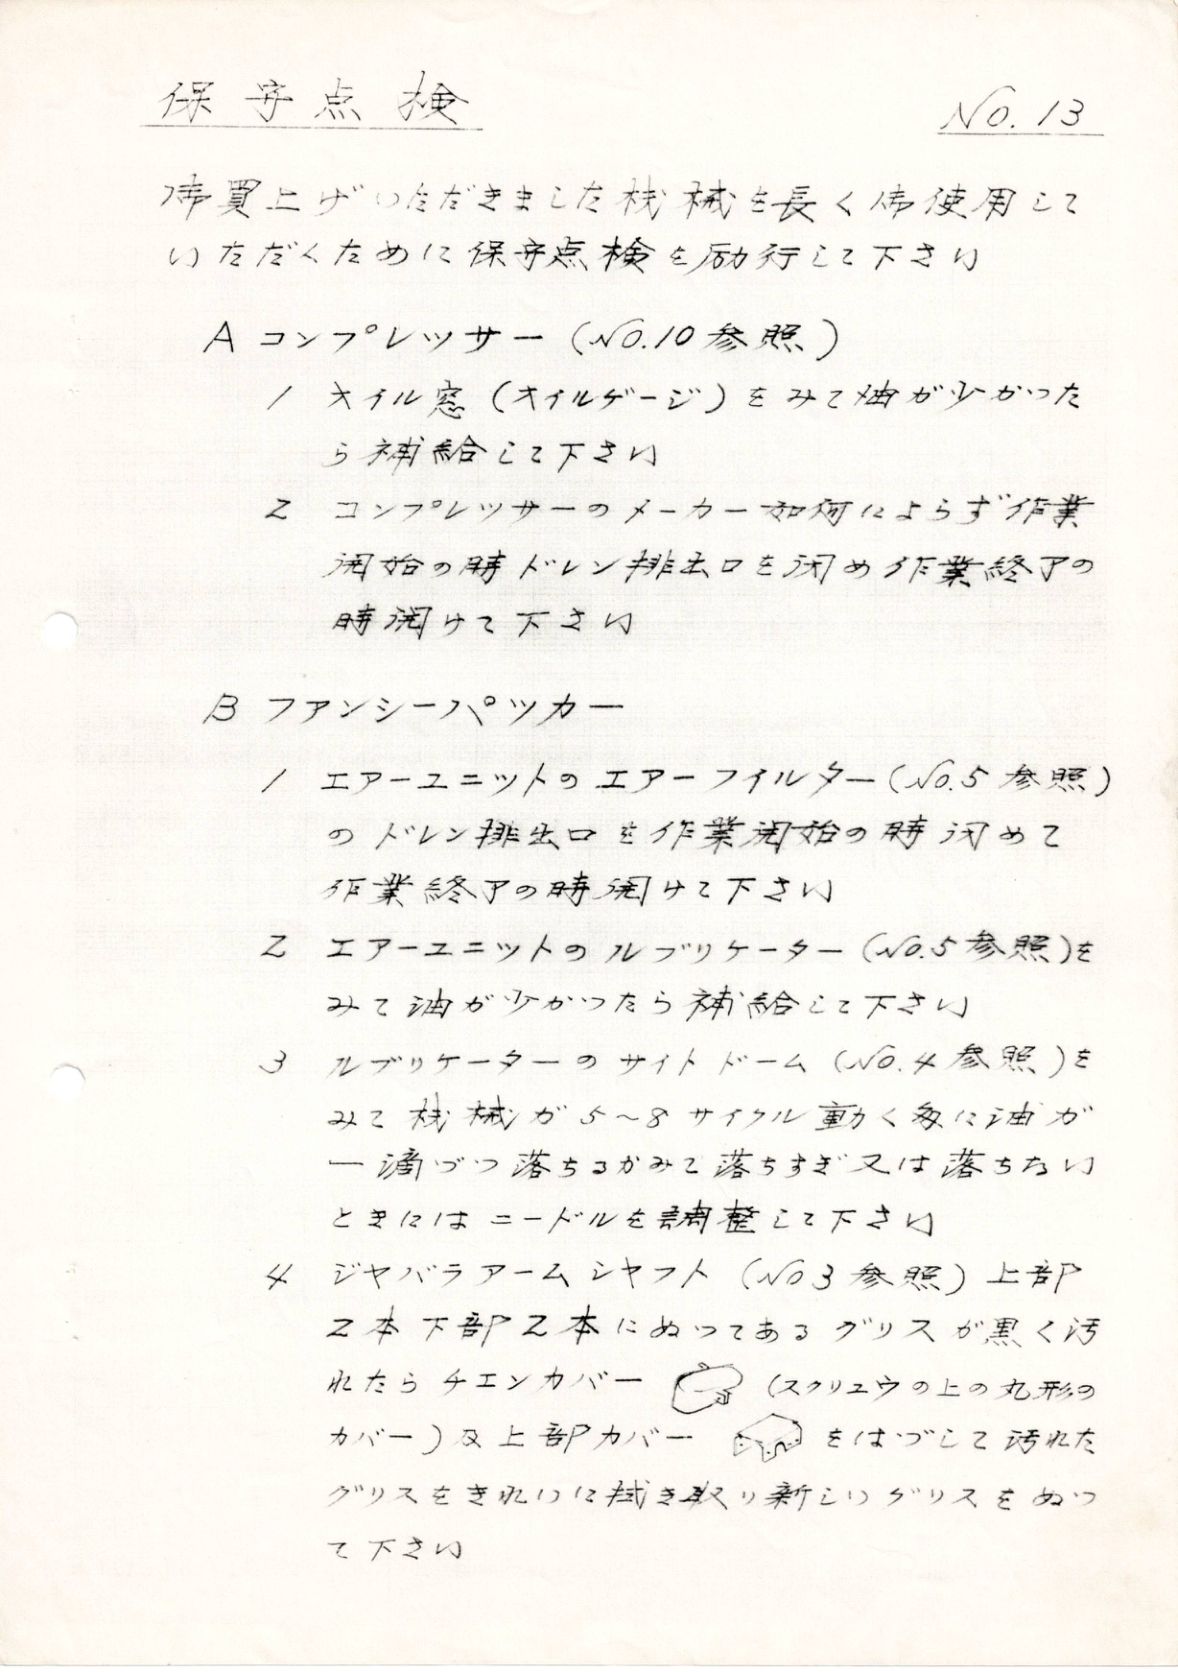 保守点検
No. 13
御買上げいただきました機械を長く御使用して
いただくために保守点検を励行して下さい
A コンプレッサー (No.10 参照)
1 オイル窓 (オイルゲージ) をみて油が少かった
ら補給して下さい
2 コンプレッサーのメーカー如何によらず作業
開始の時ドレン排出口を閉め作業終了の
時開けて下さい
B ファンシーパッカー
1 エアーユニットのエアーフィルター (No.5 参照)
のドレン排出口を作業開始の時閉めて
作業終了の時開けて下さい
2 エアーユニットのルブリケーター (No.5 参照) を
みて油が少かったら補給して下さい
3 ルブリケーターのサイトドーム (No.4 参照) を
みて機械が 5~8 サイクル動く毎に油が
一滴づつ落ちるかみて落ちすぎ又は落ちない
ときにはニードルを調整して下さい
4 ジャバラアームシャフト (No 3 参照) 上部
2本下部2本にぬってあるグリスが黒く汚
れたらチエンカバー (スクリュウの上の丸形の
カバー) 及上部カバー をはづして汚れた
グリスをきれいに拭き取り新しいグリスをぬっ
て下さい